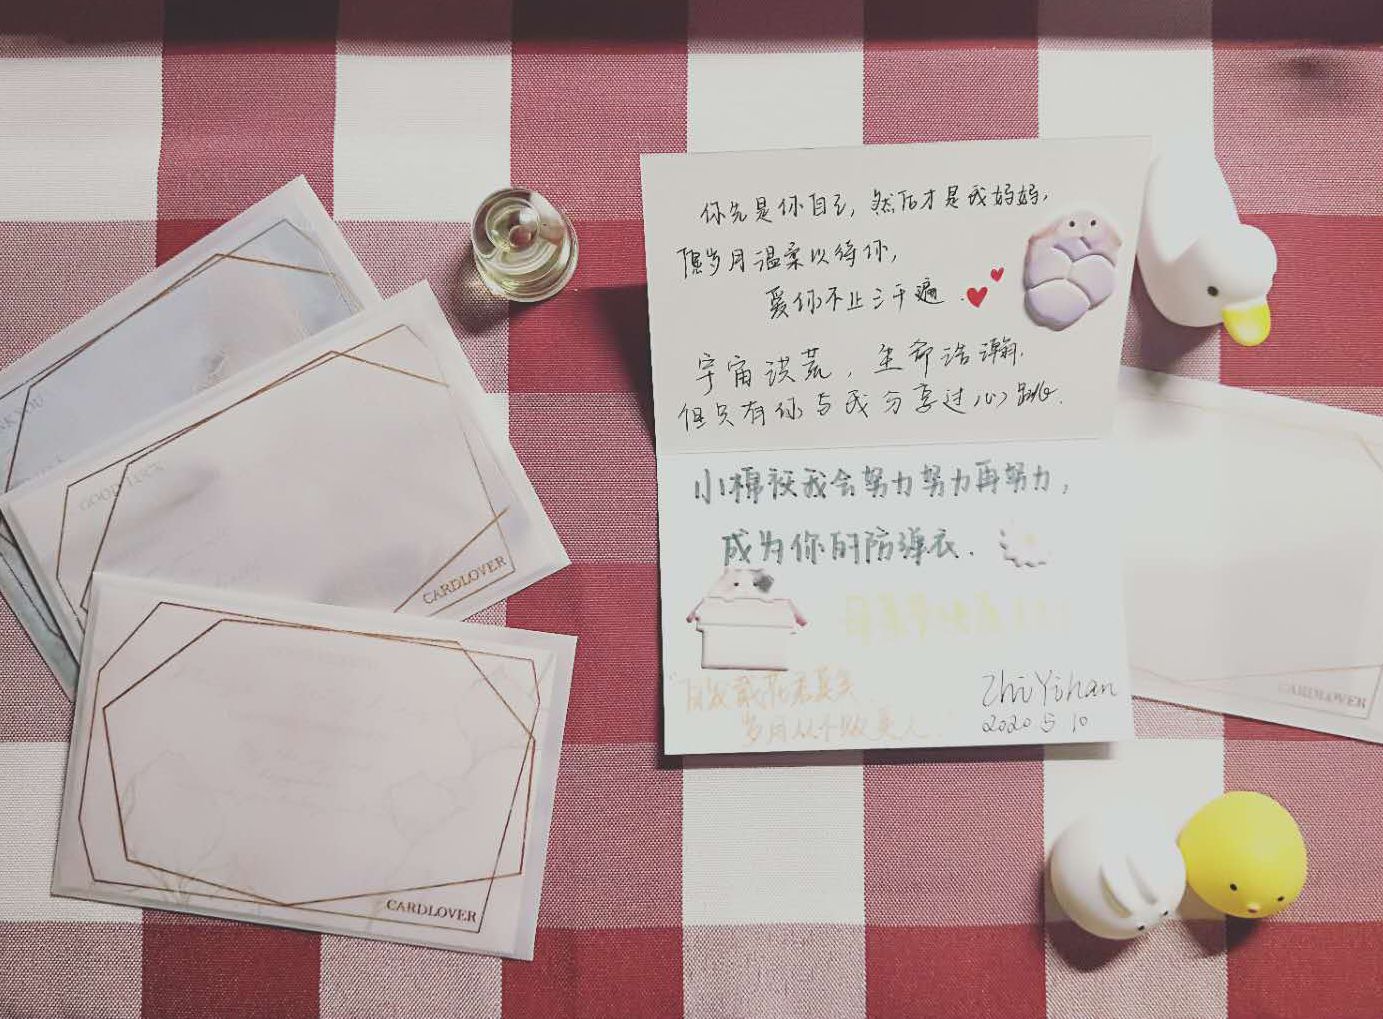 你先是你自己，然后才是我妈妈，
愿岁月温柔以待你，
爱你不止三千遍.
宇宙洪荒，生命浩瀚.
但只有你与我分享过心跳.
小棉袄我会努力努力再努力，
成为你的防弹衣.
母亲节快乐！！！
"自发戴花君莫笑
岁月从不败美人."
Zhi Yihan
2020 5 10
GOOD LUCK
CARDLOVER
CARDLOVER
CARDLOVER